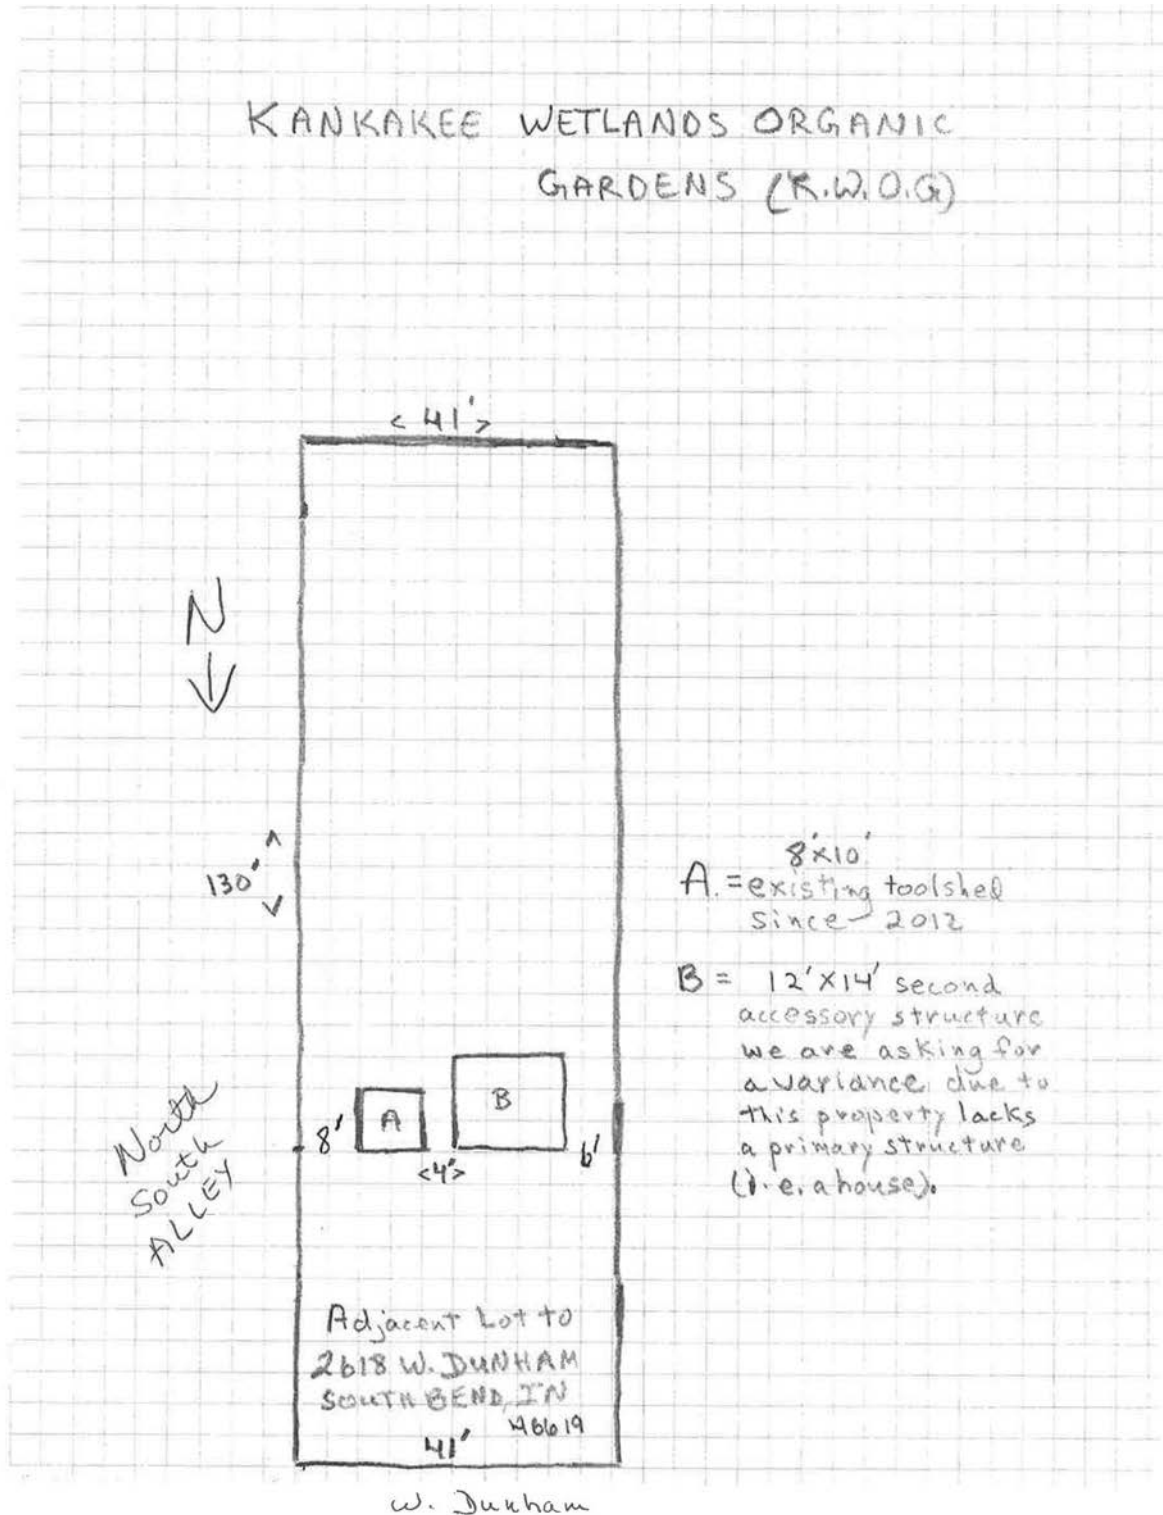 KANKAKEE WETLANDS ORGANIC
GARDENS (K.W.O.G)
< 41' >
N
130'
8'x10'
A. = existing toolshed
since - 2012
B = 12'x14' second
accessory structure
we are asking for
a variance due to
this property lacks
a primary structure
(i.e. a house).
A
B
8'
<4'>
6'
North
South
ALLEY
Adjacent Lot to
2618 W. DUNHAM
SOUTH BEND, IN
46619
41'
W. Dunham